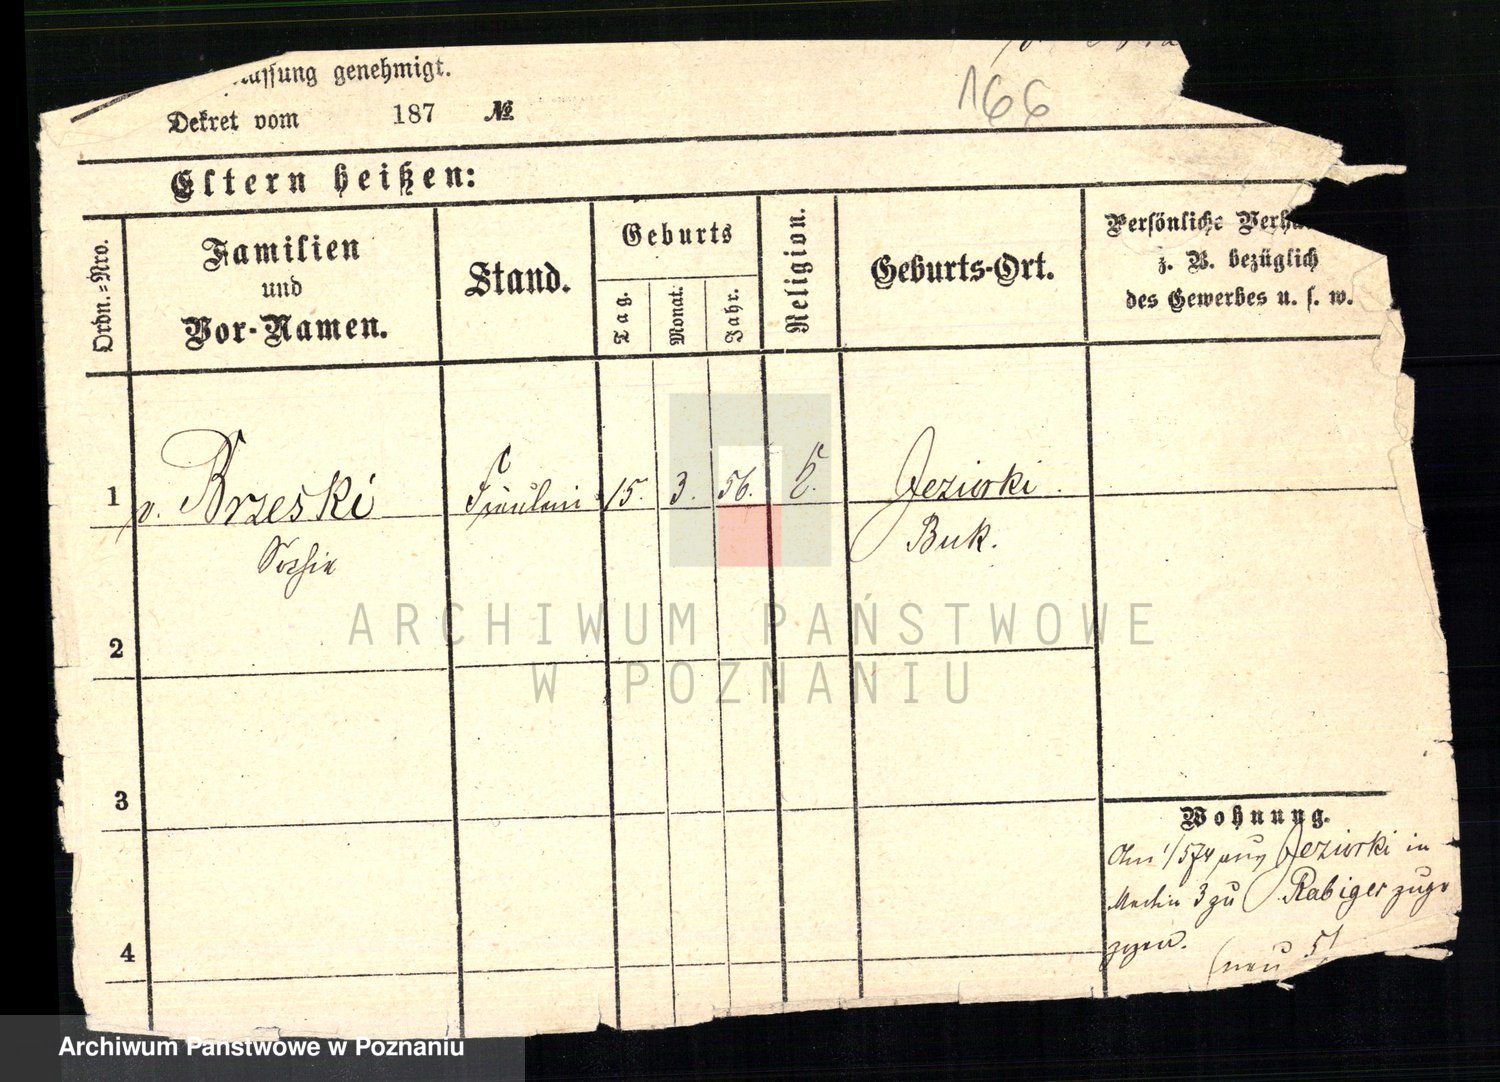 assung genehmigt.
166
Dekret vom 187 №
Eltern heißen:
Ordn.-Nro.
Familien
und
Vor-Namen.
Stand.
Geburts
Tag.
Monat.
Jahr.
Religion.
Geburts-Ort.
Persönliche Verhä
z. B. bezüglich
des Gewerbes u. s. w.
1 v. Brzeski Fräulein 15. 3. 56. Jeziorki.
Sophie Buk.
2
3
4
Wohnung.
1/5 74 aus Jeziorki in
Martin 3 zu Rabiger zuge
zogen.
(neu 51
ARCHIWUM PAŃSTWOWE
W POZNANIU
Archiwum Państwowe w Poznaniu